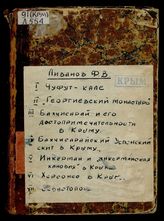 91(Крм)
Ливанов Ф.В.
КРЫМ
I Чуфут-Кале
II „Георгиевский монастырь"
III Бахчисарай и его
достопримечательности
в Крыму.
IV Бахчисарайский Успенский
скит в Крыму.
V Инкерман и „Инкерманская
киновия" в Крыму
VI Херсонес в Крыму.
VII Севастополь